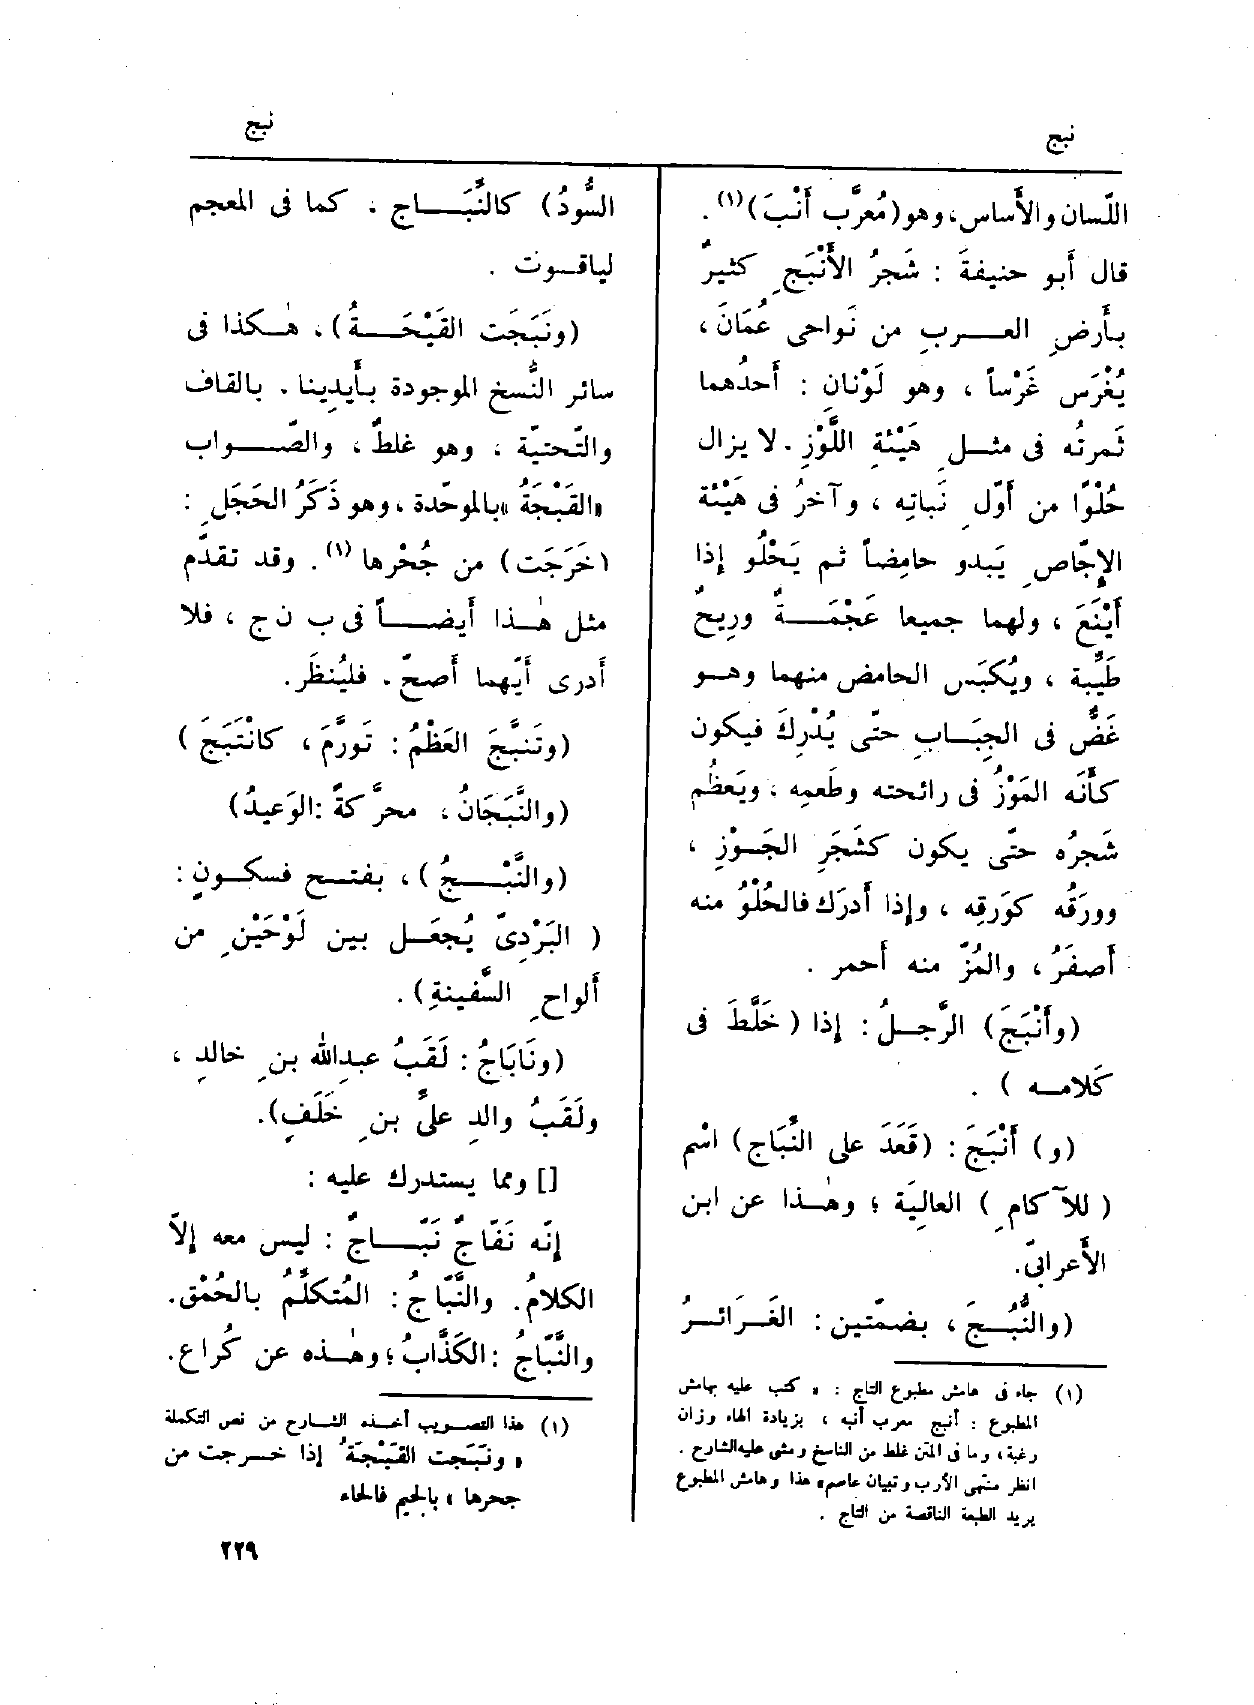 نبج
نبج
اللّسان والأَساس، وهو (مُعرَّب أَنْبَ)(١).
قال أَبو حنيفةَ : شَجرُ الأَنْبَجِ كثيرٌ
بأَرضِ العــربِ من نَواحى عُمَانَ،
يُغْرَس غَرْساً ، وهو لَوْنانِ : أَحدُهما
ثَمرتُه فى مثــلِ هَيْئةِ اللَّوْزِ. لا يزال
حُلْوًا من أَوّلِ نَباتِه ، وآخرُ فى هَيْئة
الإِجّاصِ يَبدو حامِضاً ثم يَحْلُو إِذا
أَيْنَعَ ، ولهما جميعا عَجْمَــةٌ ورِيحٌ
طَيِّبة ، ويُكبَس الحامض منهما وهــو
غَضٌّ فى الجِبَــابِ حتّى يُدْرِكَ فيكون
كأَنّه المَوْزُ فى رائحته وطَعمِه ، ويَعظُم
شَجرُه حتّى يكون كشَجَرِ الجَــوْزِ ،
وورَقُه كوَرقِه ، وإِذا أَدرَك فالحُلْوُ منه
أَصفَرُ ، والمُزّ منه أَحمر .
(وأَنْبَجَ) الرَّجــلُ : إِذا ( خَلَّطَ فى
كَلامــه ) .
(و) أَنْبَجَ : (قَعَدَ على النُّبَاجِ) اسْم
( للآكامِ ) العالِيَة ؛ وهٰــذا عن ابن
الأَعرابىّ.
(والنُّبُــجَ ، بضمّتين : الغَــرَائــرُ
(١) جاء فى هامش مطبوع التاج : « كتب عليه بهامش
المطبوع : أنبج معرب أنبه ، بزيادة الهاء وزان
رغبة، وما فى المتن غلط من الناسخ ومشى عليه الشارح .
انظر منتهى الأرب وتبيان عاصم» هذا وهامش المطبوع
يريد الطبعة الناقصة من التاج .
السُّودُ) كالنُّبَــاجِ . كما فى المعجم
لياقــوت .
(ونَبَجَت القَيْحَــةُ) ، هٰــكذا فى
سائر النُّسخ الموجودة بأَيدِينا . بالقاف
والتّحتيّة ، وهو غلطٌ ، والصّــواب
«القَبْجَةُ» بالموحّدة ، وهو ذَكَرُ الحَجَلِ :
(خَرَجَت) من جُحْرها (١) . وقد تقدّم
مثل هٰــذا أَيضــاً فى ب ن ج ، فلا
أَدرى أَيّهما أَصحّ . فليُنظَر.
(وتَنبَّجَ العَظْمُ : تَورَّمَ ، كانْتَبَجَ )
(والنَّبَجَانُ ، محرَّكةً : الوَعيدُ)
(والنَّبْــجُ ) ، بفتــح فسكــونٍ :
( البَرْدِىّ يُجعَــل بين لَوْحَيْنِ من
أَلواحِ السَّفينةِ) .
(ونَابَاجُ : لَقَبُ عبدِالله بنِ خالدٍ ،
ولَقَبُ والدِ علىِّ بنِ خَلَفٍ).
[] ومما يستدرك عليه :
إِنّه نَفّاجٌ نَبّــاجٌ : ليس معه إِلاّ
الكلامُ. والنَّبّاجُ : المُتكلِّمُ بالحُمْق.
والنَّبّاجُ : الكَذَّابُ ؛ وهٰــذه عن كُراع.
(١) هذا التصويب أخــذه الشــارح من نص التكملة
« ونَبَجت القَبْجَةُ إذا خــرجت من
جحرها » بالجيم فالحاء
٢٢٩